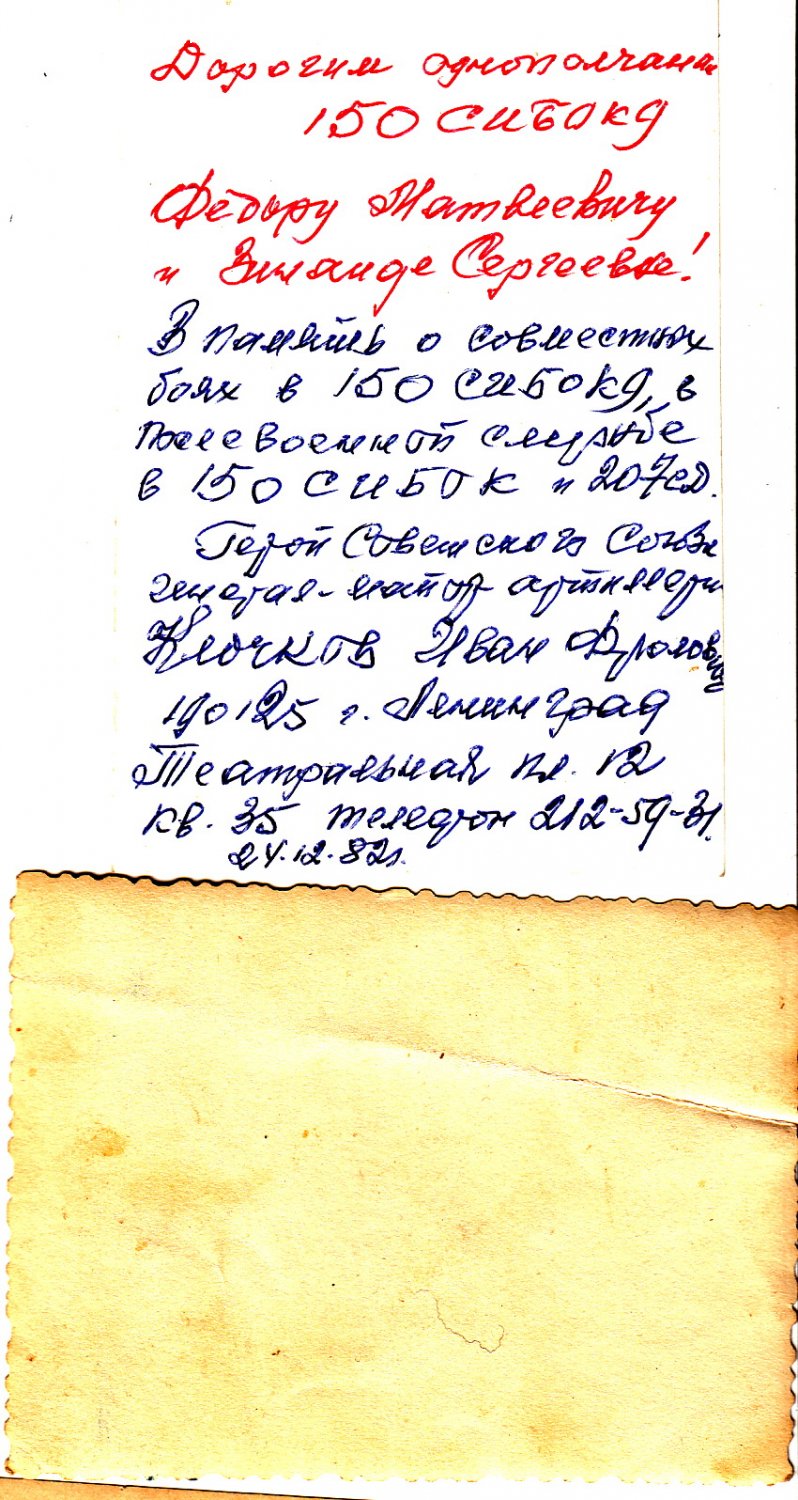 Дорогим однополчанам
150 СИБОКД
Фёдору Матвеевичу
и Зинаиде Сергеевне!
В память о совместных
боях в 150 СИБОКД, в
послевоенной службе
в 150 СИБОК и 207сд.
Герой Советского Союза
генерал-майор артиллерии
Клочков Иван Фролович
190125 г. Ленинград
Театральная пл. 12
кв. 35 телефон 212-59-31.
24.12.82г.